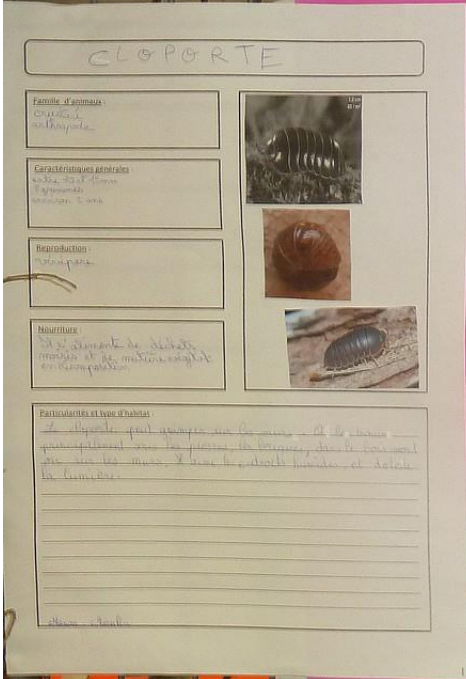 CLOPORTE
Famille d'animaux :
crustacé
arthropode
Caractéristiques générales :
entre 10 et 15 mm
environ 2 ans
Reproduction :
Nourriture :
Il s'alimente de déchets
moisis et de matière végétale
en décomposition
Particularités et type d'habitat :
Le cloporte peut grimper sur les murs. On le trouve
principalement sous les pierres, les briques, dans le bois mort
ou sur les murs. Il aime les endroits humides et déteste
la lumière.